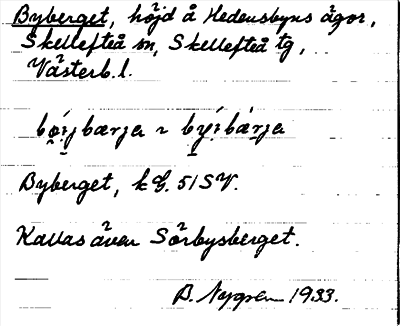 Byberget, höjd å Hedensbyns ägor,
Skellefteå sn, Skellefteå tg,
Västerb. l.
Byberget, k G. 51 SV.
Kallas även Sörbysberget.
B. Nygren 1933.